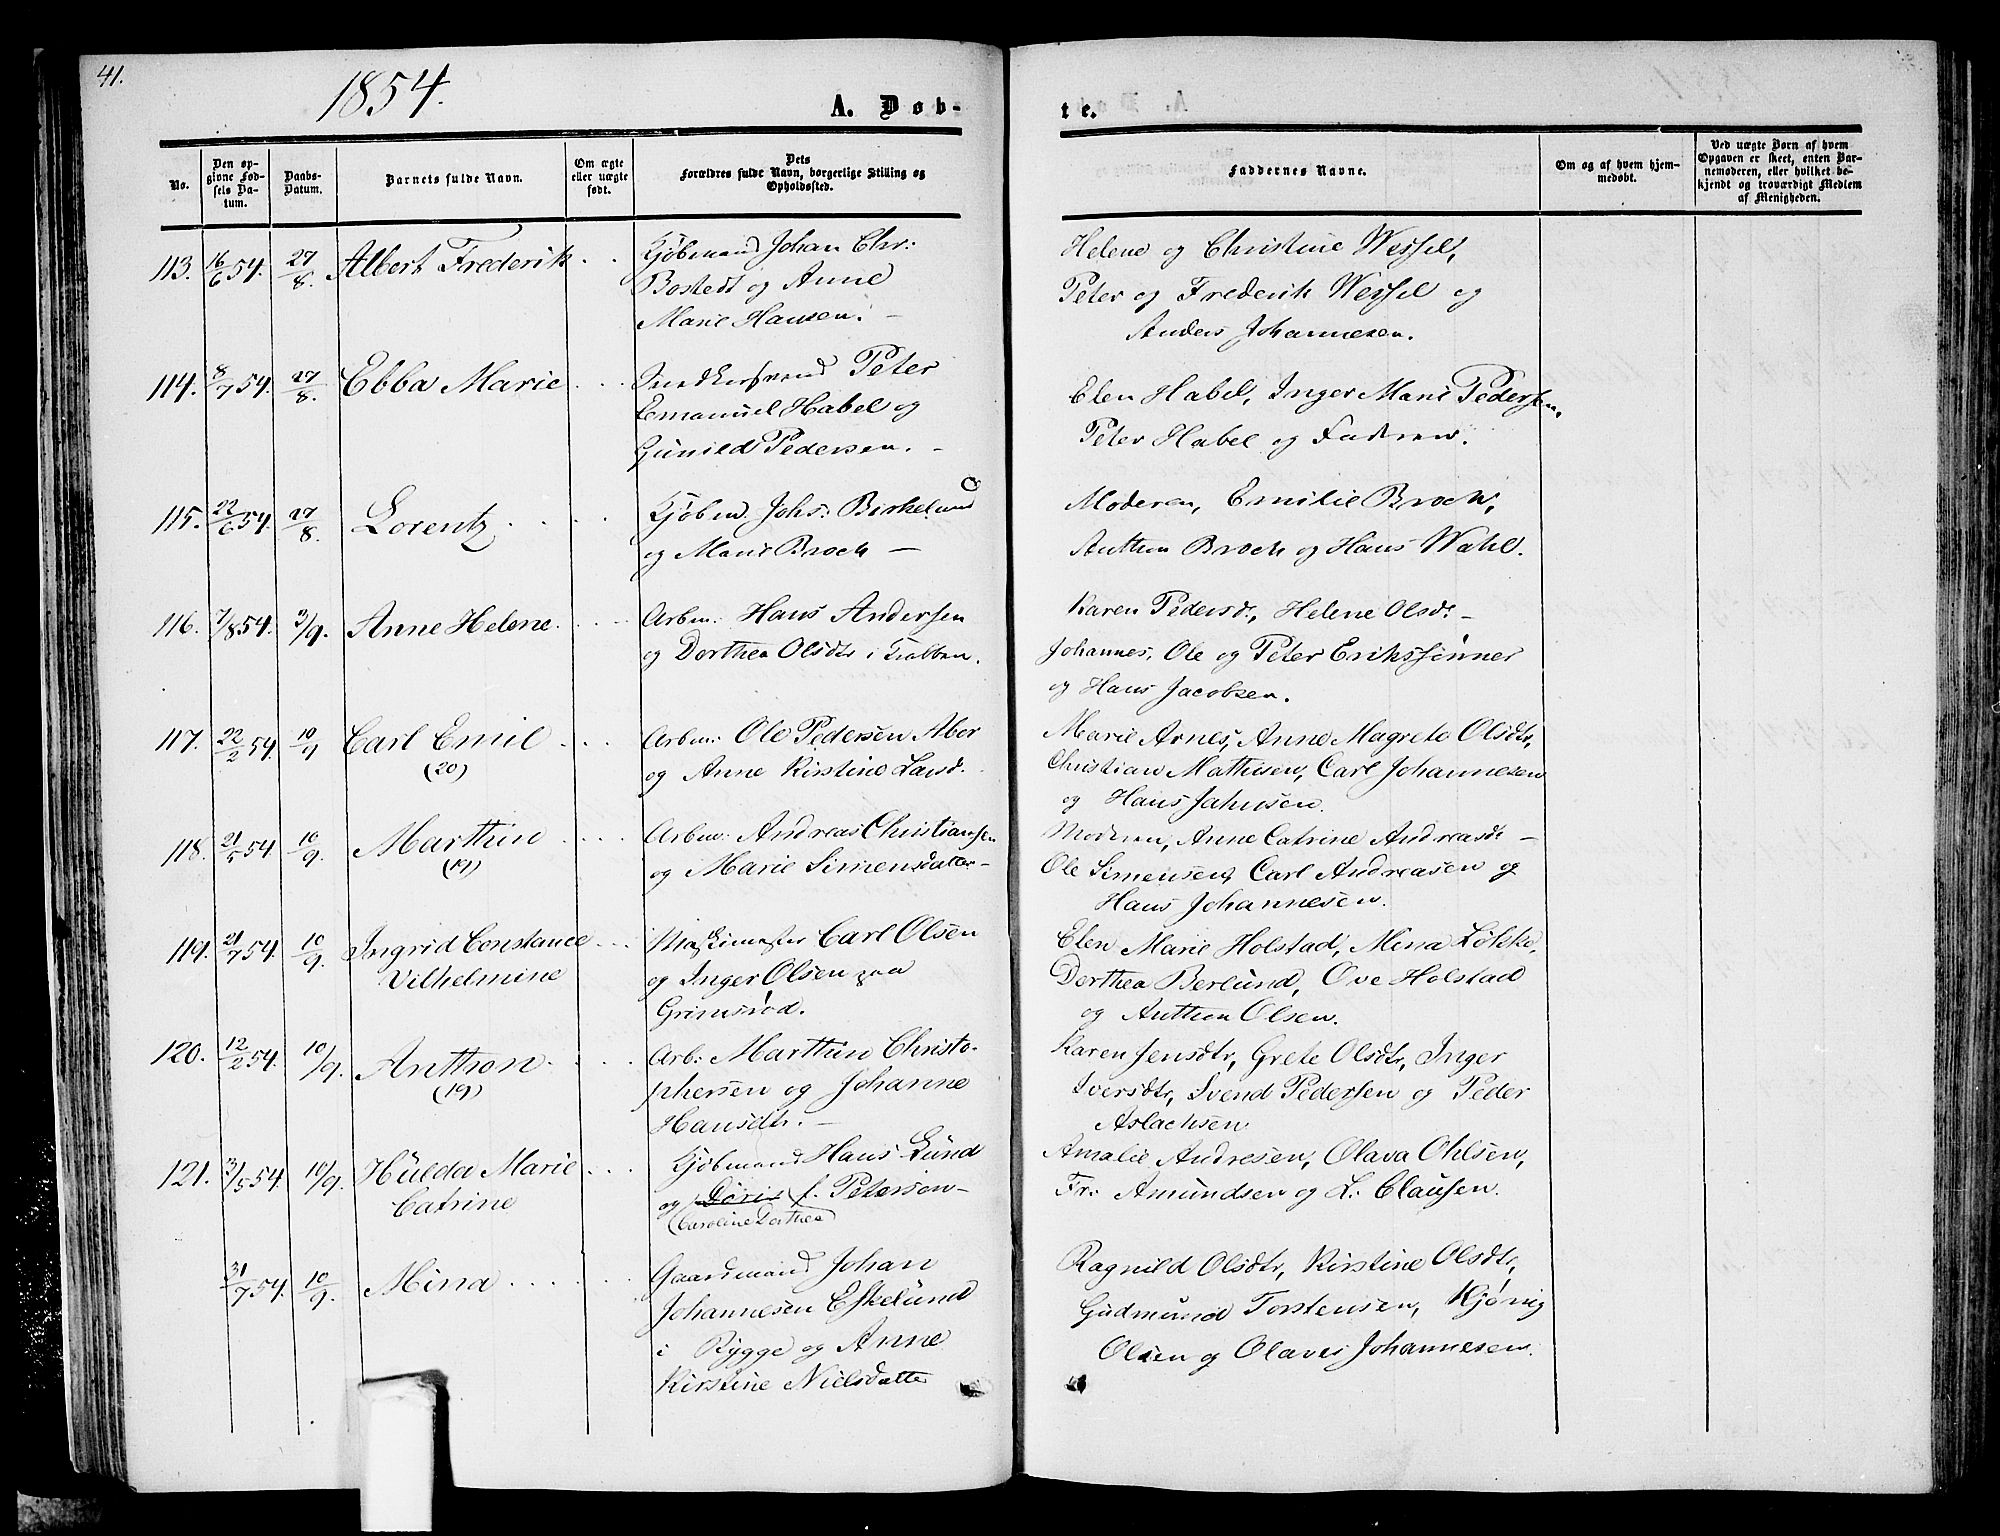 41.
1854.
A. Døb-
te.
No.
Den op-
givne Fød-
sels Da-
tum.
Daabs-
Datum.
Barnets fulde Navn.
Om ægte
eller uægte
født.
Dets
Forældres fulde Navn, borgerlige Stilling og
Opholdssted.
Faddernes Navne.
Om og af hvem hjem-
medøbt.
Ved uægte Børn af hvem
Opgaven er skeet, enten Bar-
nemoderen, eller hvilket be-
kjendt og troværdigt Medlem
af Menigheden.
113. 16/6 54. 27/8. Albert Frederik . . Kjøbmand Johan Chr:
Bostedt og Anne
Marie Hansen. -
Helene og Christine Wessel,
Peter og Frederik Wessel og
Anders Johannesen.
114. 8/7 54. 27/8. Ebba Marie . . . Snedkersvend Peter
Emanuel Habel og
Gunild Pedersen. -
Elen Habel, Inger Marie Pedersen,
Peter Habel og Fadren.
115. 22/6 54. 27/8. Lorentz . . . . Kjøbm. Johs: Birkelund
og Marie Broch -
Moderen, Emilie Broch,
Anthon Broch og Hans Wahl.
116. 7/8 54. 3/9. Anne Helene . . . . Arbm: Hans Andersen
og Dorthea Olsdtr i
Karen Pedersd., Helene Olsdt -
Johannes, Ole og Peter Erikssønner
og Hans Jacobsen.
117. 22/2 54. 10/9 Carl Emil . . . . Arbm: Ole Pedersen Aber
(20)
og Anne Kirstine Larsd.
Marie Arnes, Anne Magrete Olsdtr,
Christian Mathisen, Carl Johannesen
og Hans Jahnsen.
118. 21/5 54. 10/9. Marthin . . . Arbm: Andreas Christiansen
(19)
og Marie Simensdatter -
Moderen, Anne Catrine Andreasdt -
Ole Simensen, Carl Andreasen og
Hans Johannesen.
119. 21/7 54. 10/9. Ingrid Constance . . . Carl Olsen
Vilhelmine
og Inger Olsen paa
Grimsrød.
Elen Marie Holstad, Mina Løkke,
Dorthea Berlund, Ove Holstad
og Anthon Olsen.
120. 12/2 54. 10/9. Anthon . . . . Arb: Marthin Christo-
(19)
phersen og Johanne
Hansdtr. -
Karen Jensdtr, Grete Olsdtr, Inger
Iversdtr, Svend Pedersen og Peder
Aslachsen
121. 3/5 54. 10/9. Hulda Marie . . . Kjøbmand Hans Lund
Catrine
og Doris f. Petersen -
(Caroline Dorthea)
Amalie Andresen, Olava Ohlsen,
Fr: Amundsen og L. Clausen.
31/7 54. 10/9. Mina . . . . . . Gaardmand Johan
Johannesen Eskelund
i Rygge og Anne
Kirstine Nielsdatter
Ragnild Olsdtr, Kirstine Olsdtr,
Gudmund Torstensen, Kjønig
Olsen og Olaves Johannesen.